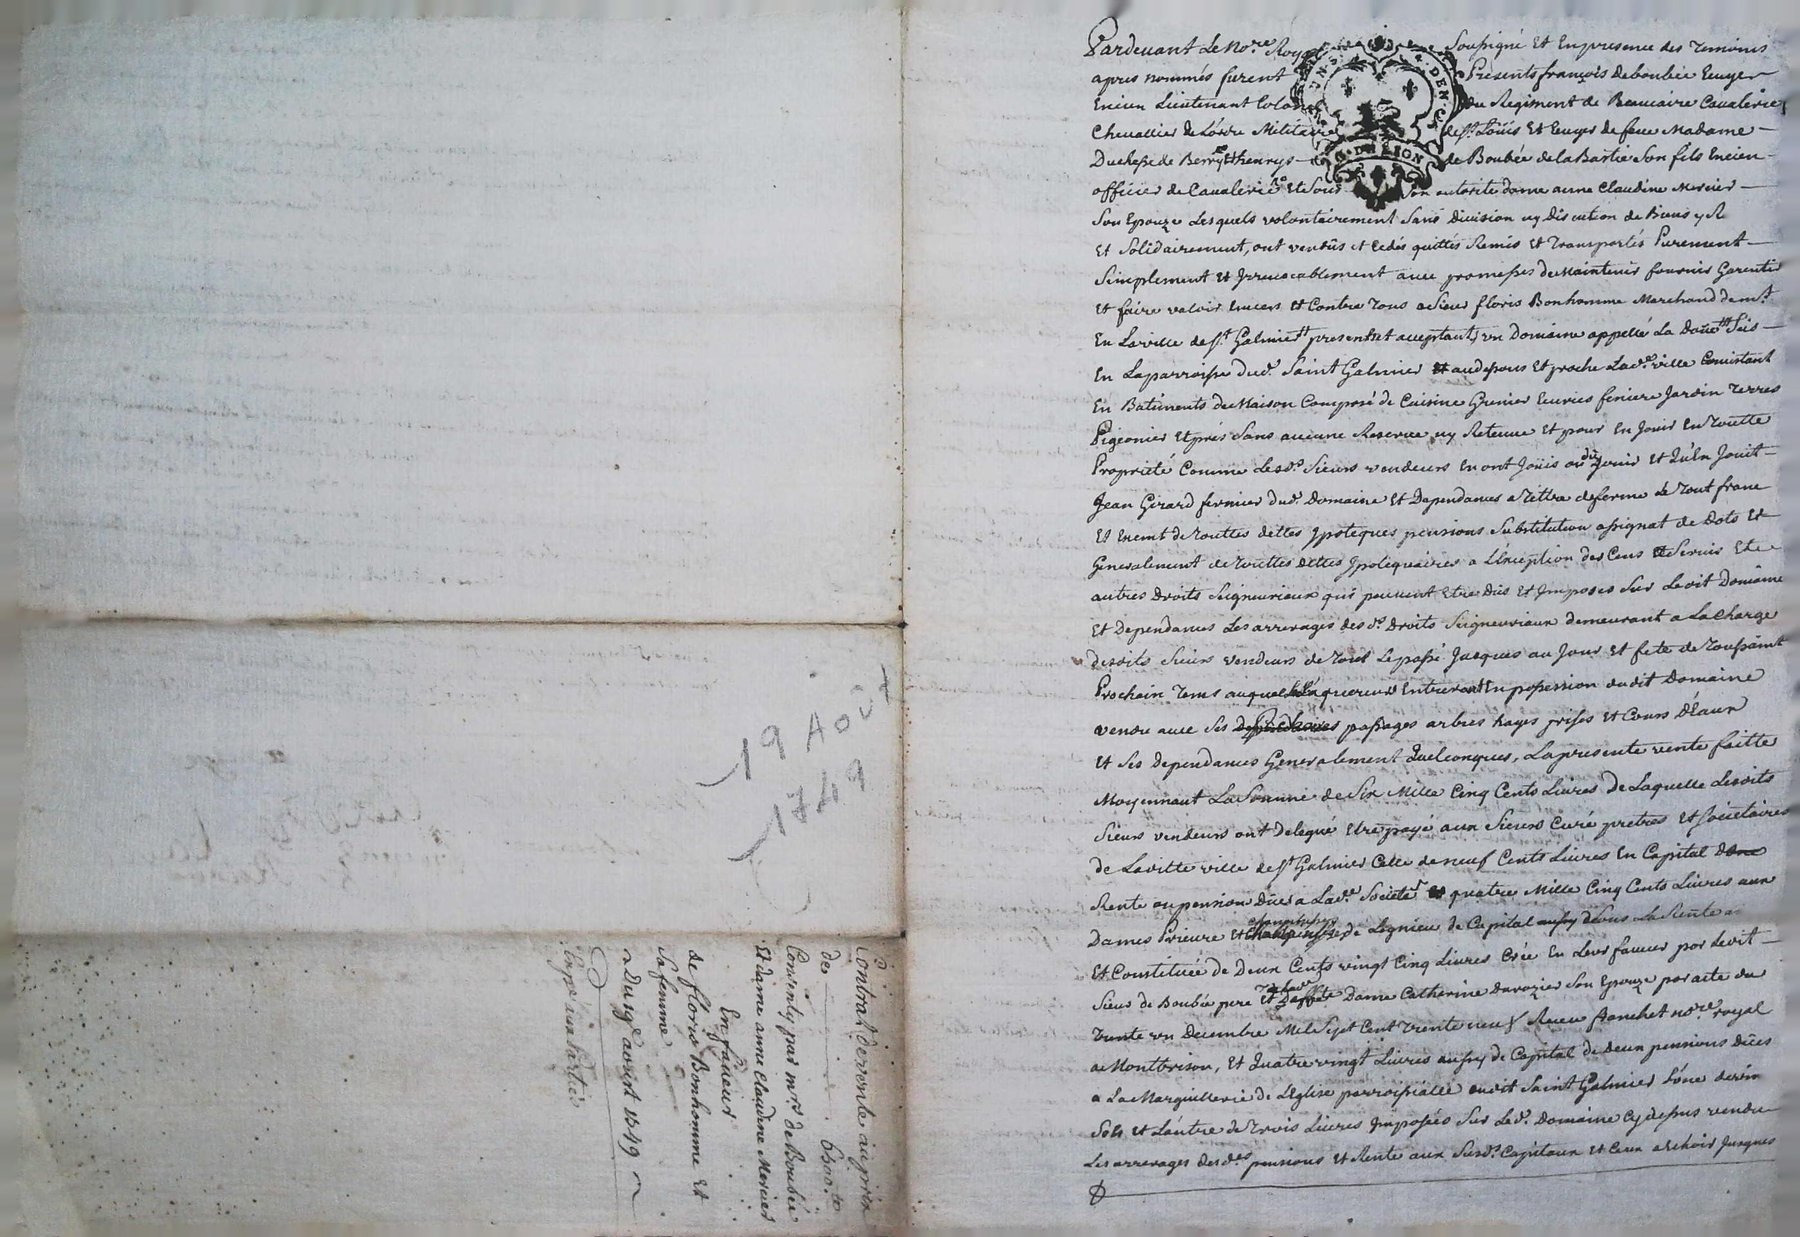 Pardevant Le No.re Royal Soussigné Et En presence des Temoins
apres nommés furent Présents françois deboubée Ecuyer
Encien Lieutenant Colonel du Regiment de Beaucaire Cavalerie
Chevallier de L'ordre Militaire de St. Loüis Et Ecuyer de feue Madame
Duchesse de Berry Et henrys de Boubée de la Bastie Son fils Encien
officier de Cavalerie Et Sous Son autorité dame anne Claudine Mercier
Son Epouze Lesquels volontairement Sans division ny Discution de Biens
Et Solidairement, ont vendûs et Cedés quittés Remis Et Transportés Purement
Simplement Et Irrevocablement avec promesses de Maintenir fournir Garentir
Et faire valoir Envers Et Contre Tous a Sieur floris Bonhomme Marchand dem.t
En La ville de St. Galmier present et acceptant, un Domaine appellé La Sis
En La parroisse dud. Saint Galmier au dessous Et proche Lad. ville Consistant
En Batiments de Maison Composé de Cuisine Grenier Ecuries feniere Jardin Terres
Pigeonier Et prés Sans aucune Reserve ny Retenue Et pour En Jouir En Toutte
Proprieté Comme Lesd.s Sieurs vendeurs En ont Joüis ou dû Jouir Et qu'En Jouit
Jean Girard fermier dud. Domaine Et Dependances a Tittre de ferme de Tout franc
Et Exemt de Touttes dettes Ipoteques pensions Substitution assignat de Dots Et
Generalement de Touttes dettes Ipotequaires a L'exception des Cens Et Servis Et
autres Droits Seigneuriaux qui peuvent Etre Dûs Et Imposés Sur Ledit Domaine
Et Dependances Les arrerages des d.s Droits Seigneuriaux demeurant a La Charge
desdits Sieurs vendeurs de Tout Le passé Jusques au Jour Et fete de Toussaint
Prochain Tems auquel L'aquereur Entrera En possession dudit Domaine
vendu avec Ses passages arbres hayes prises Et Cours D'Eaux
Et Ses dependances Generalement Quelconques, La presente vente faitte
Moyennant La Somme de Six Mille Cinq Cents Livres de Laquelle Lesdits
Sieurs vendeurs ont delegué Etre payé aux Sieurs Curé pretres Et Societaires
de Laditte ville de St Galmier Celle de neuf Cents Livres En Capital
Rente ou pension Düe a Lad. Societé quatre Mille Cinq Cents Livres aux
Dames Prieure Et de Legnieu de Capital Sous La Rente
Et Constituée de Deux Cents vingt Cinq Livres Crée En Leur faveur par Ledit
Sieur de Boubée pere Et Dame Catherine Davozier Son Epouze par acte du
Trente un Decembre Mil Sept Cent Trente neuf Receu fronchet nore royal
a Montbrison, Et Quatre vingt Livres aussy de Capital de Deux pensions Dûes
a La Marguillerie de L'Eglise parroissialle dudit Saint Galmier L'une de
Sols Et L'autre de Trois Livres Imposées Sur Led. Domaine Cy dessus vendu
Les arrerages desd.es pensions Et Rente aux Susd. Capitaux Et Ceux a Echoir Jusques
19 Août
1749
Contrat de vente au prix
des 6500.tt
Consenty par mrs. de Boubée
Et dame anne Claudine Mercier
En faveur
de floris Bonhomme Et
Sa femme
Du 19e aoust 1749